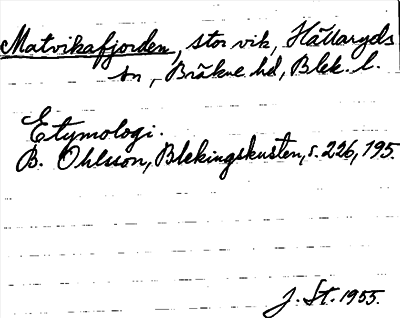 Matvikafjorden, stor vik, Hällaryds
sn, Bräkne hd, Blek. l.
Etymologi.
B. Ohlsson, Blekingskusten, s. 226, 195.
J. St. 1955.